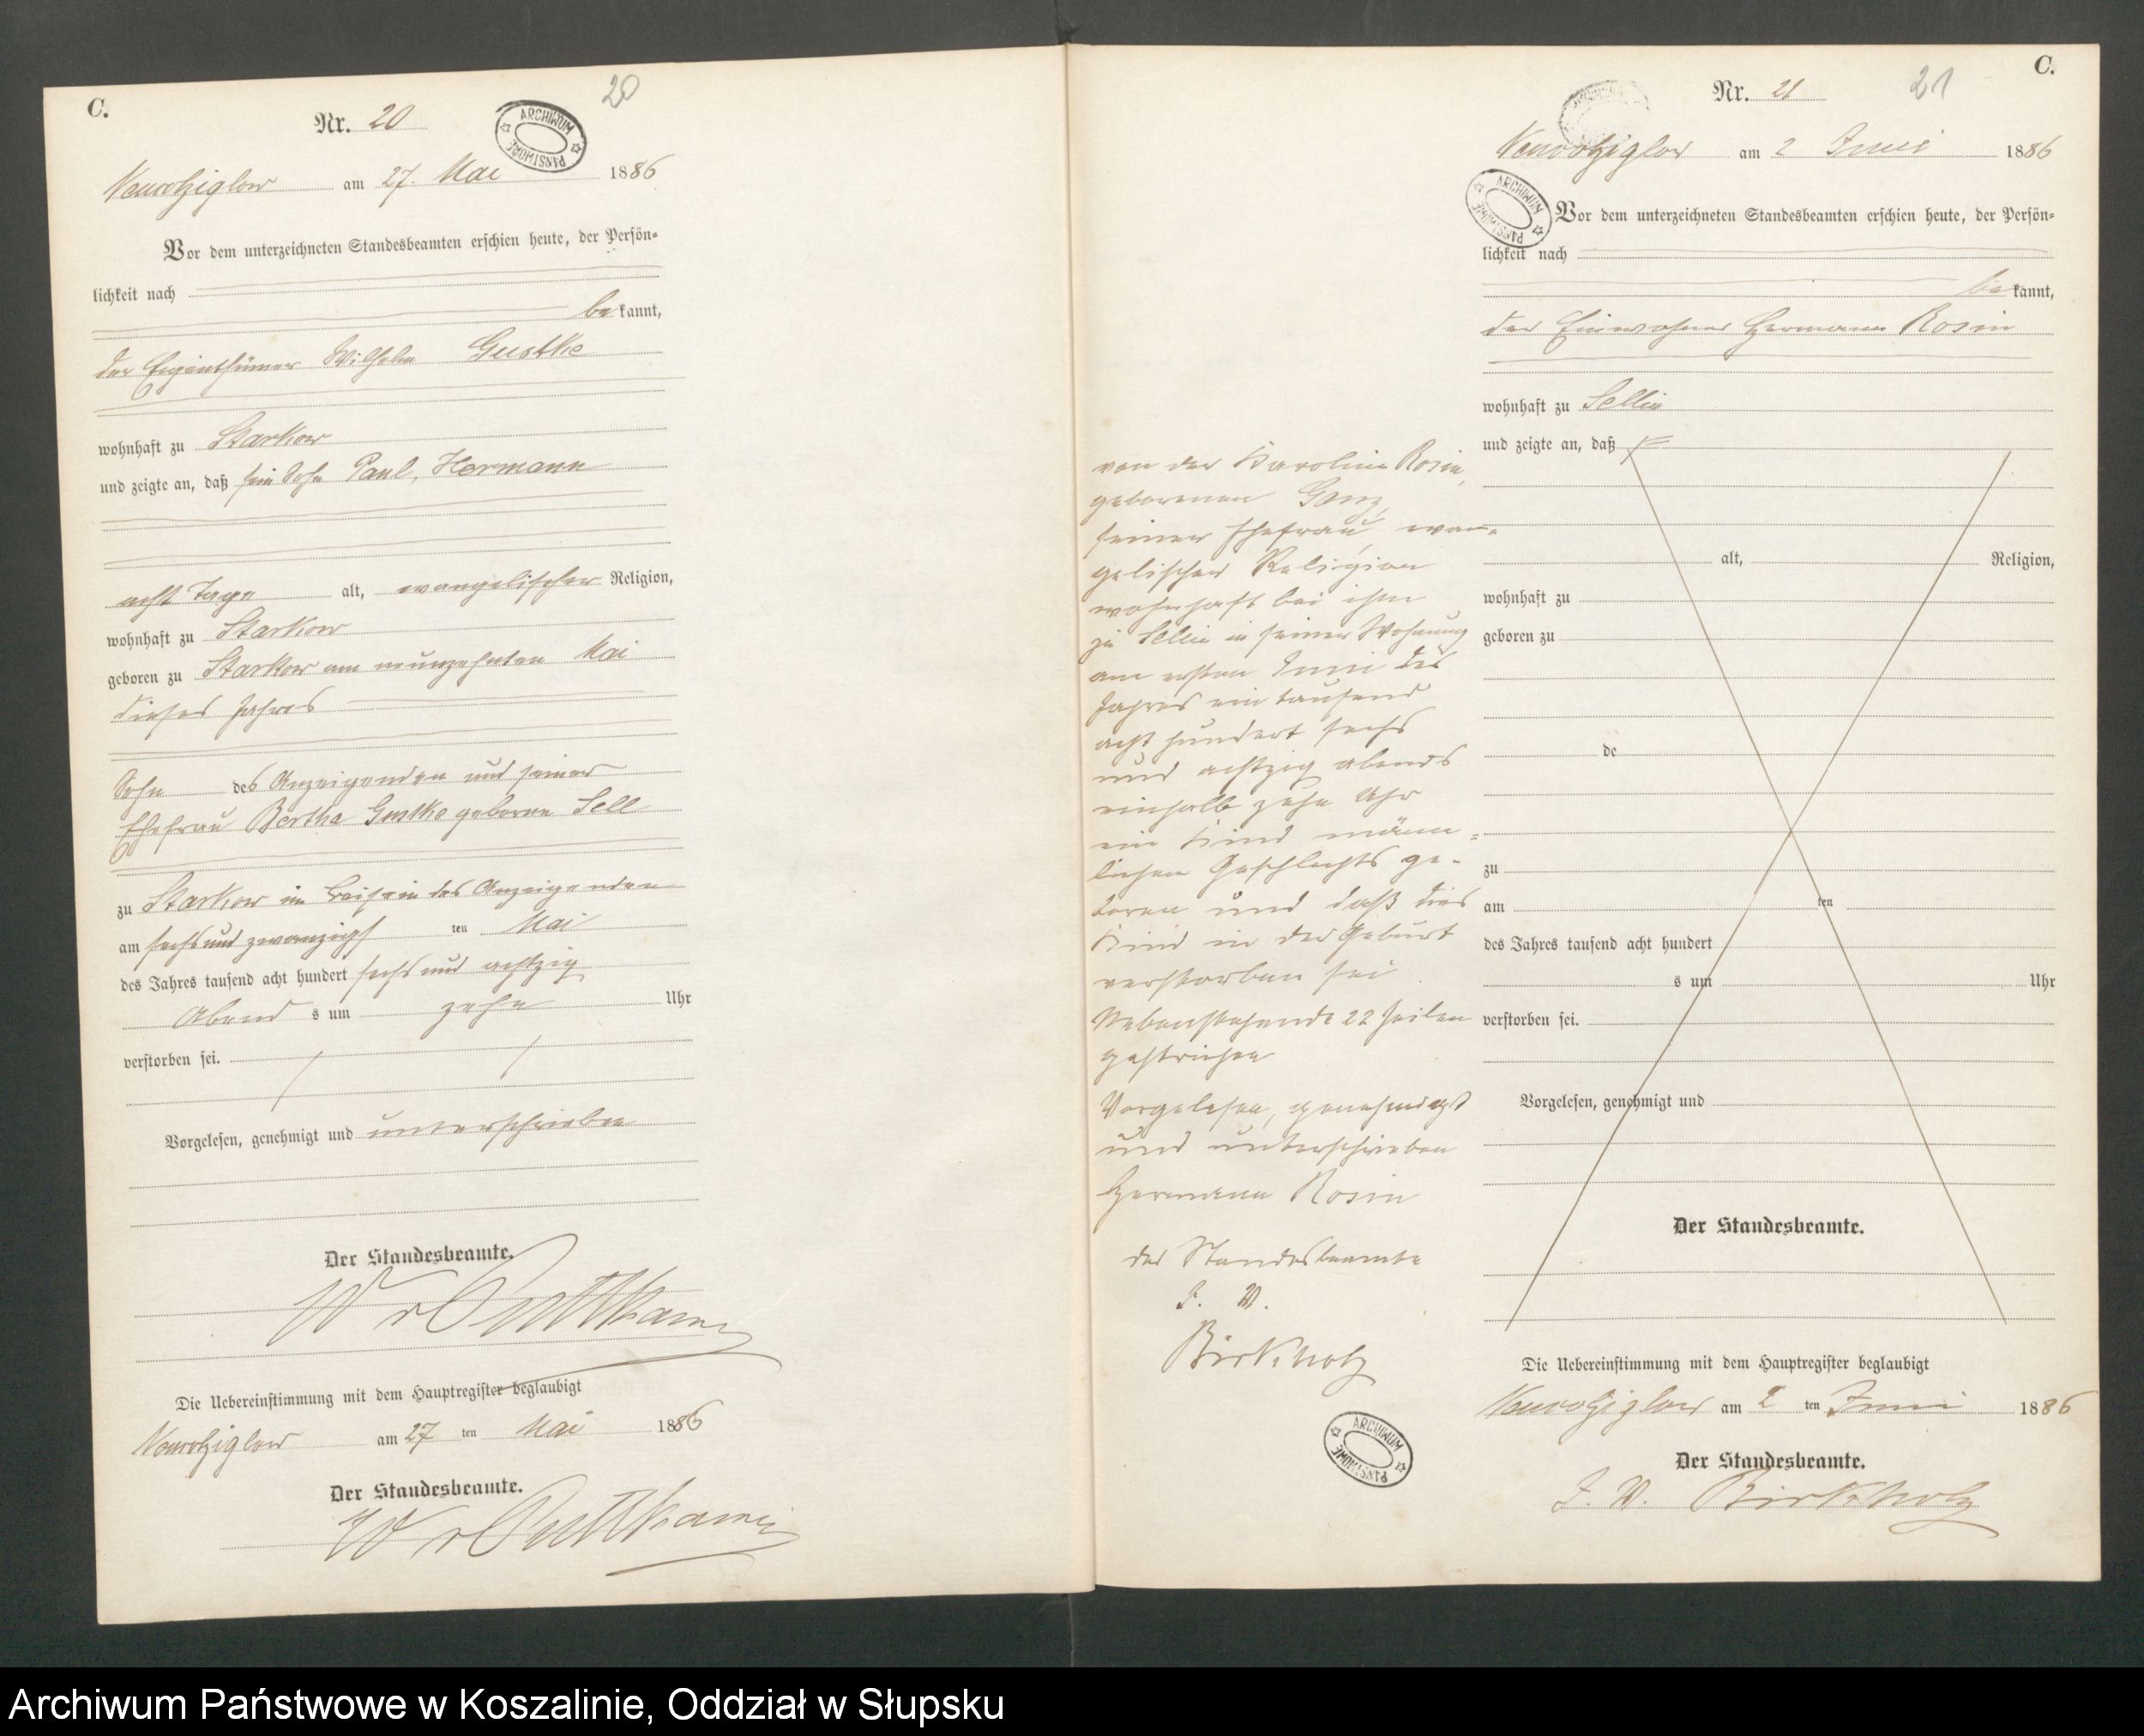 C.
20
Nr. 20
ARCHIWUM PAŃSTWOWE
Neurotziglow am 27. Mai 1886
Vor dem unterzeichneten Standesbeamten erschien heute, der Persön=
lichkeit nach
bekannt,
der Eigenthümer Wilhelm Gustke
wohnhaft zu Starkow
und zeigte an, daß sein Sohn Paul, Hermann
acht Tage alt, evangelischer Religion,
wohnhaft zu Starkow
geboren zu Starkow am neunzehnten Mai
dieses Jahres
Sohn des Anzeigenden und seiner
Ehefrau Bertha Gustke geborne Sell
zu Starkow im Beisein des Anzeigenden
am sechs und zwanzigsten Mai
des Jahres tausend acht hundert sechs und achtzig
Abends um zehn Uhr
verstorben sei.
Vorgelesen, genehmigt und unterschrieben
Der Standesbeamte.
W v Puttkamer
Die Uebereinstimmung mit dem Hauptregister beglaubigt
Neurotziglow am 27 ten Mai 1886
Der Standesbeamte.
W v Puttkamer
C.
21
Nr. 21
ARCHIWUM PAŃSTWOWE
Neurotziglow am 2 Juni 1886
ARCHIWUM PAŃSTWOWE
Vor dem unterzeichneten Standesbeamten erschien heute, der Persön=
lichkeit nach
bekannt,
der Einwohner Hermann Rosin
wohnhaft zu Sellin
und zeigte an, daß
alt, Religion,
wohnhaft zu
geboren zu
de
zu
am ten
des Jahres tausend acht hundert
s um Uhr
verstorben sei.
Vorgelesen, genehmigt und
Der Standesbeamte.
von der Karoline Rosin,
geborenen Ganz,
seiner Ehefrau, evan=
gelischer Religion
wohnhaft bei ihm
zu Sellin in seiner Wohnung
am ersten Juni des
Jahres ein tausend
acht hundert sechs
und achtzig abends
einhalb zehn Uhr
ein Kind männ=
lichen Geschlechts ge-
boren und daß dies
Kind in der Geburt
verstorben sei
Nebenstehende 22 Zeilen
gestrichen
Vorgelesen, genehmigt
und unterschrieben
Hermann Rosin
der Standesbeamte
I. V.
Birkholz
ARCHIWUM PAŃSTWOWE
Die Uebereinstimmung mit dem Hauptregister beglaubigt
Neurotziglow am 2 ten Juni 1886
Der Standesbeamte.
I. V. Birkholz
Archiwum Państwowe w Koszalinie, Oddział w Słupsku